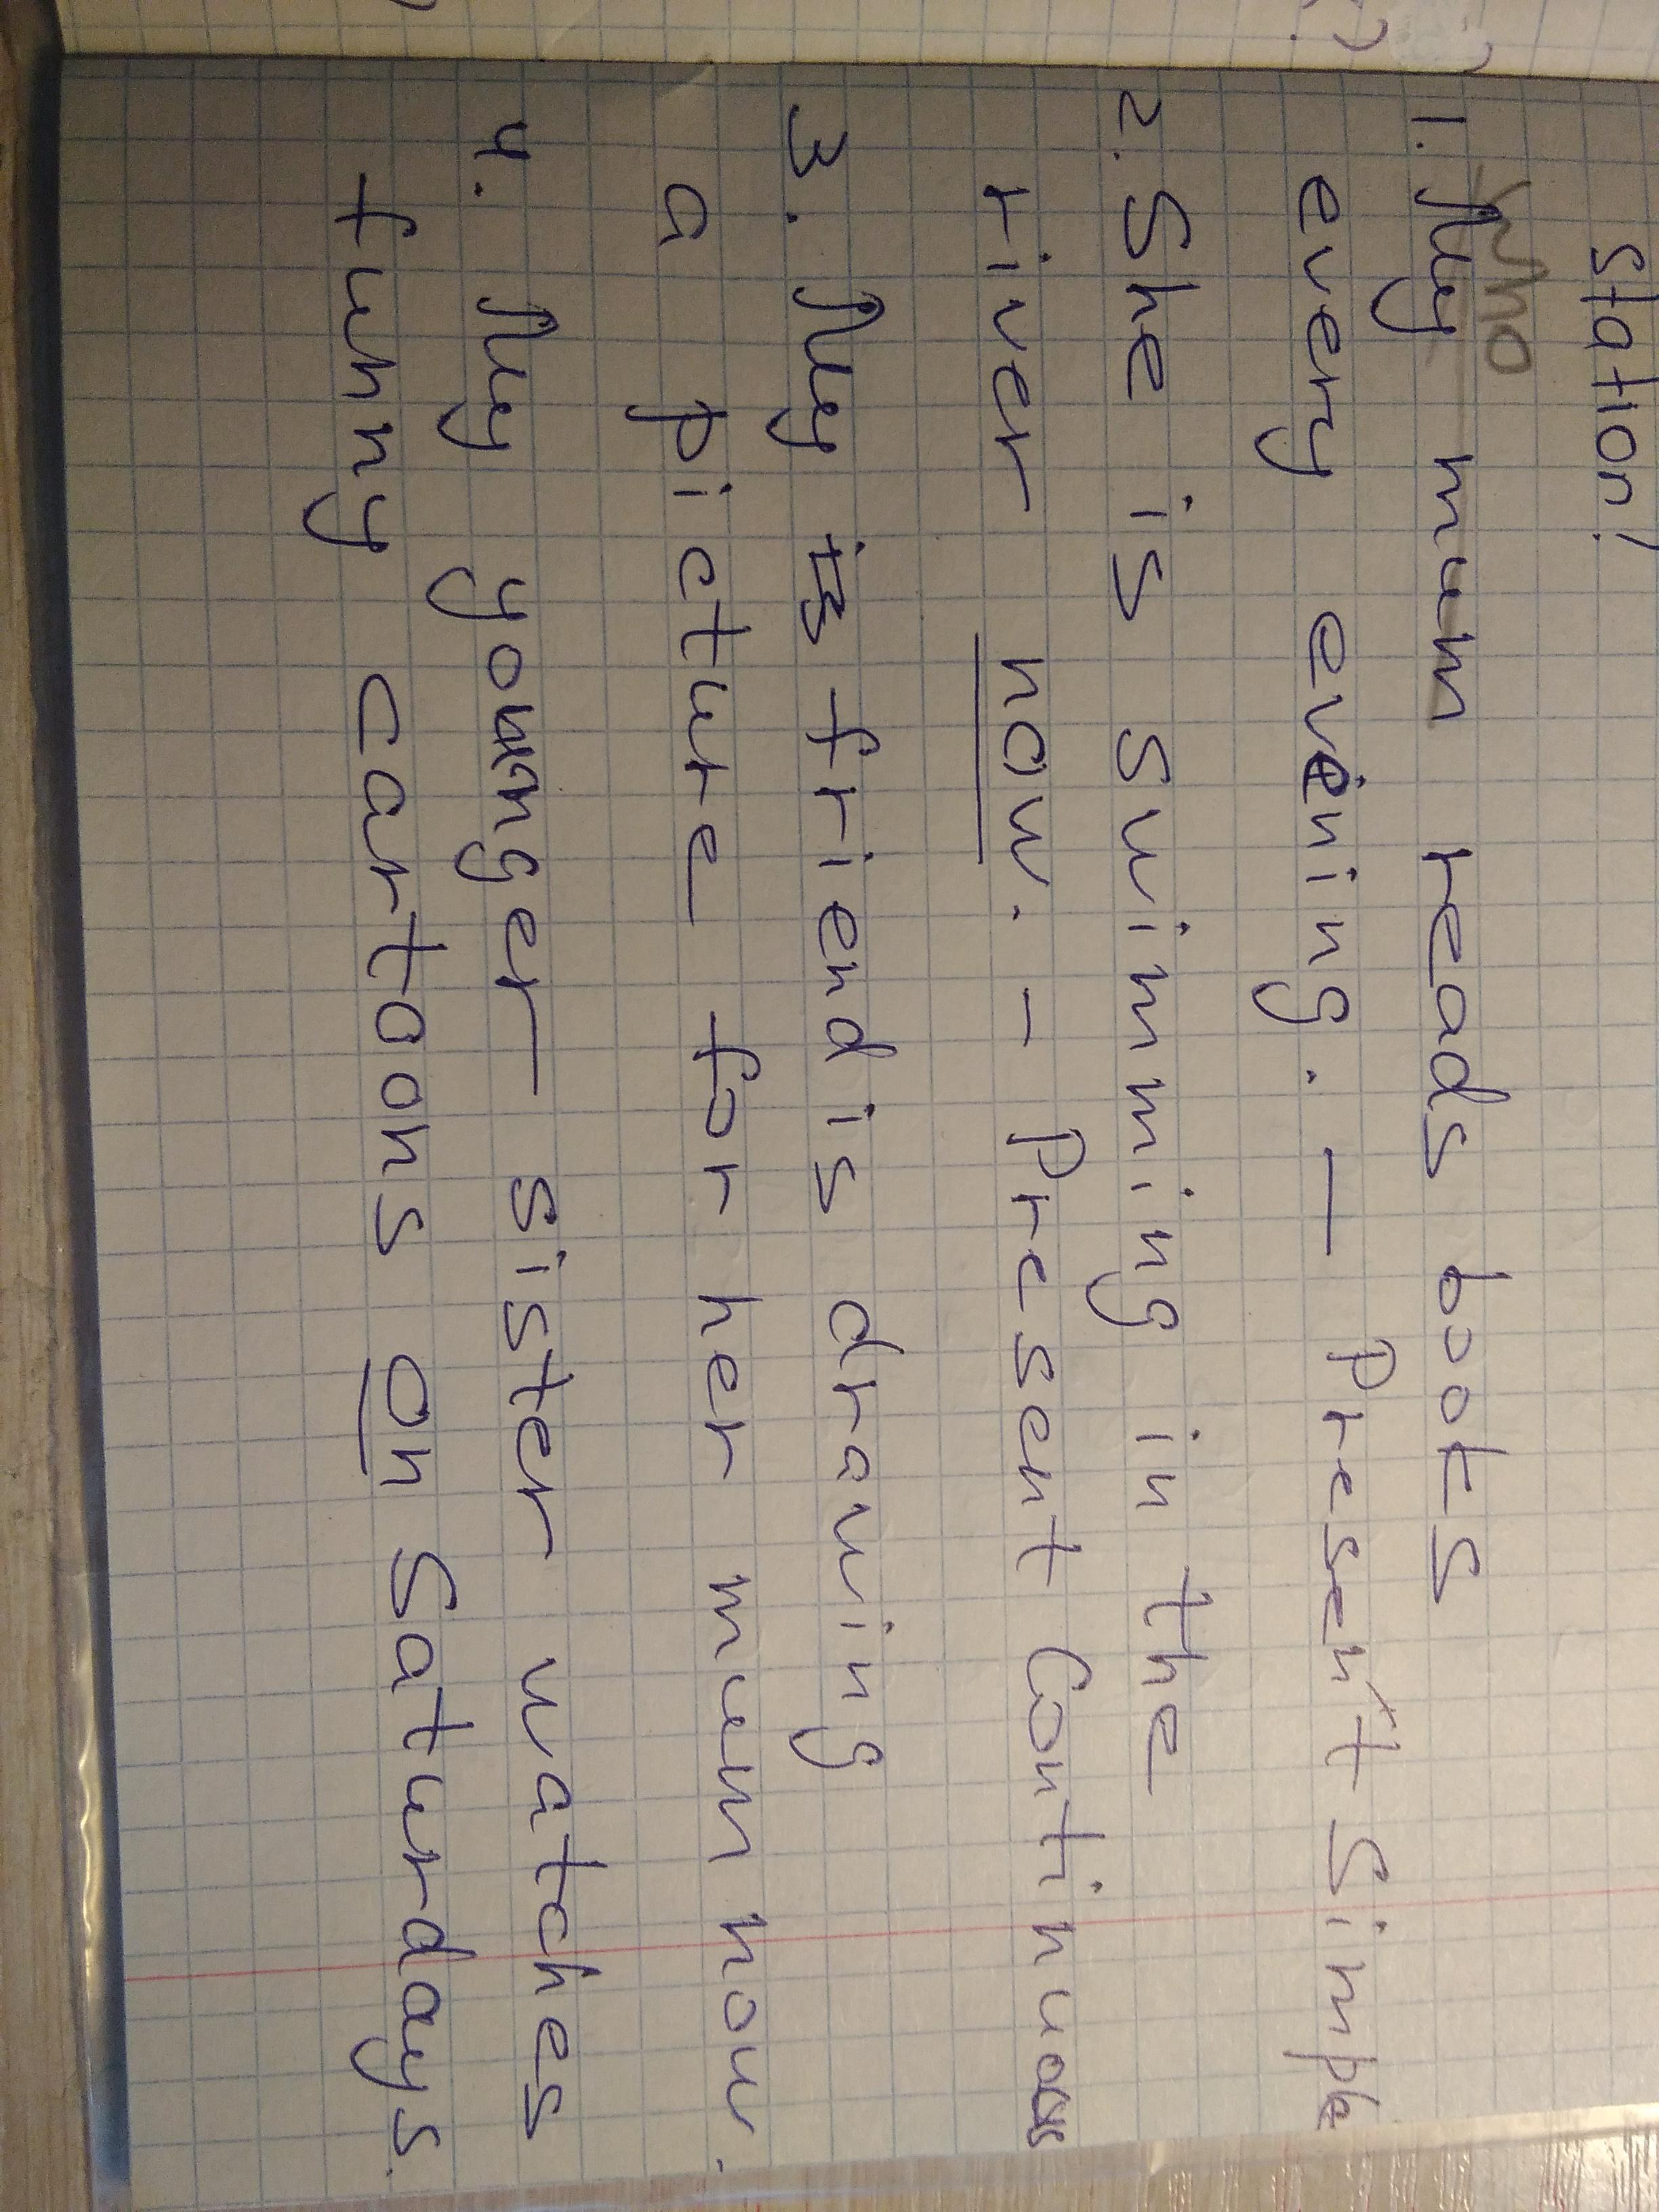 station!
who
1. My mum reads books
every evening. — Present Simple
2. She is swimming in the
river now. - Present Continuous
3. My is friend is drawing
a picture for her mum now.
4. My younger sister watches
funny cartoons on Saturdays.